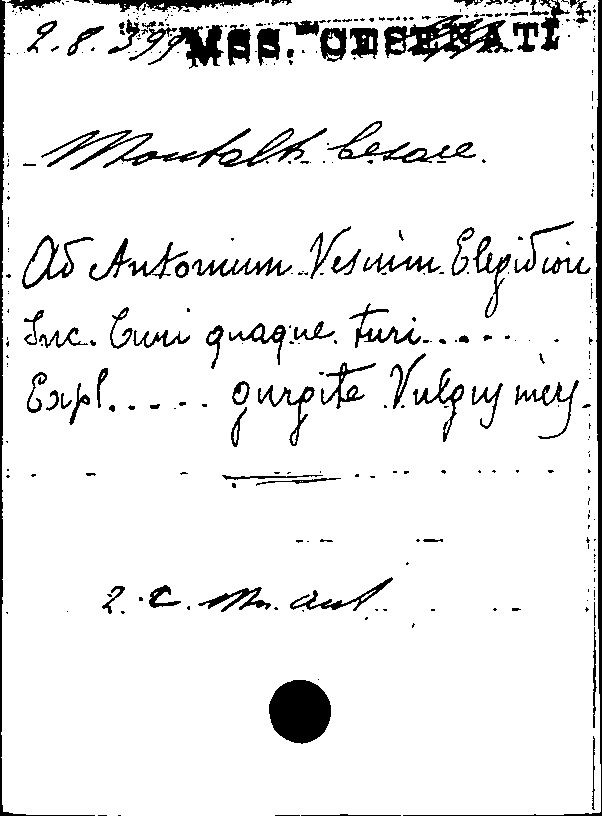 2.8.399 MSS. CESENATI
Montalti Cesare.
Ad Antonium Vesinim Elegidion
Inc. Cuni quaque turi.....
Expl..... gurgite Vulgus iners.
2. c. Mn. aut.